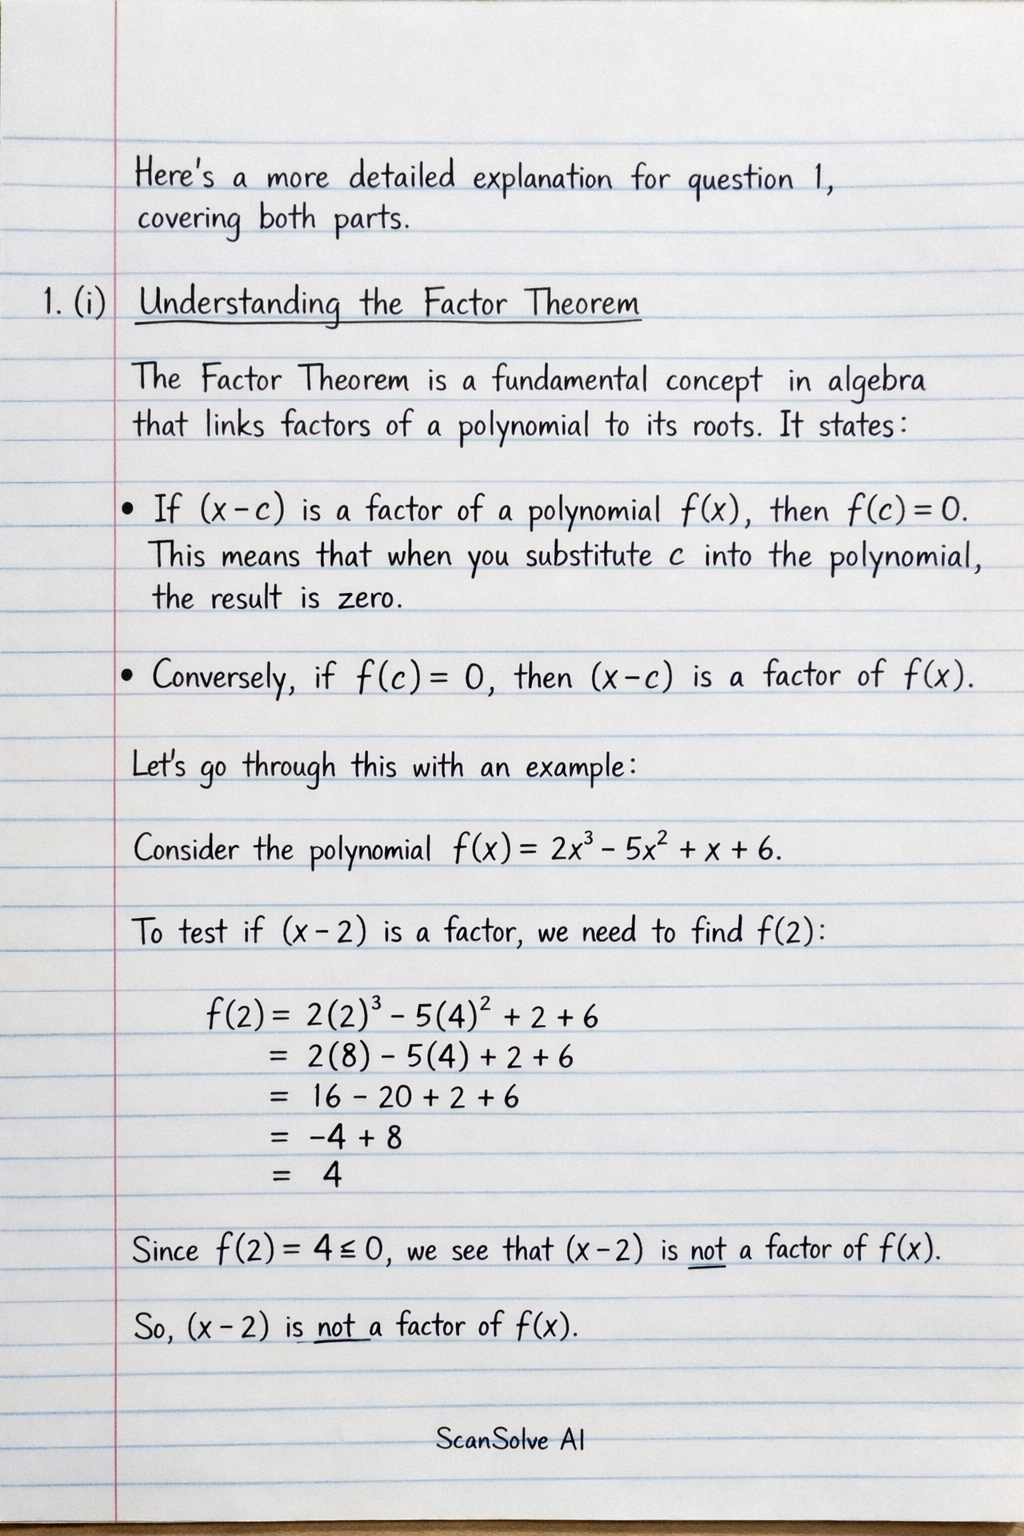 Here's a more detailed explanation for question 1,
covering both parts.
1. (i) Understanding the Factor Theorem
The Factor Theorem is a fundamental concept in algebra
that links factors of a polynomial to its roots. It states:
• If (x-c) is a factor of a polynomial f(x), then f(c) = 0.
This means that when you substitute c into the polynomial,
the result is zero.
• Conversely, if f(c) = 0, then (x-c) is a factor of f(x).
Let's go through this with an example:
Consider the polynomial f(x) = 2x³ - 5x² + x + 6.
To test if (x - 2) is a factor, we need to find f(2):
f(2) = 2(2)³ - 5(4)² + 2 + 6
= 2(8) - 5(4) + 2 + 6
= 16 - 20 + 2 + 6
= -4 + 8
= 4
Since f(2) = 4 ≤ 0, we see that (x - 2) is not a factor of f(x).
So, (x - 2) is not a factor of f(x).
ScanSolve AI